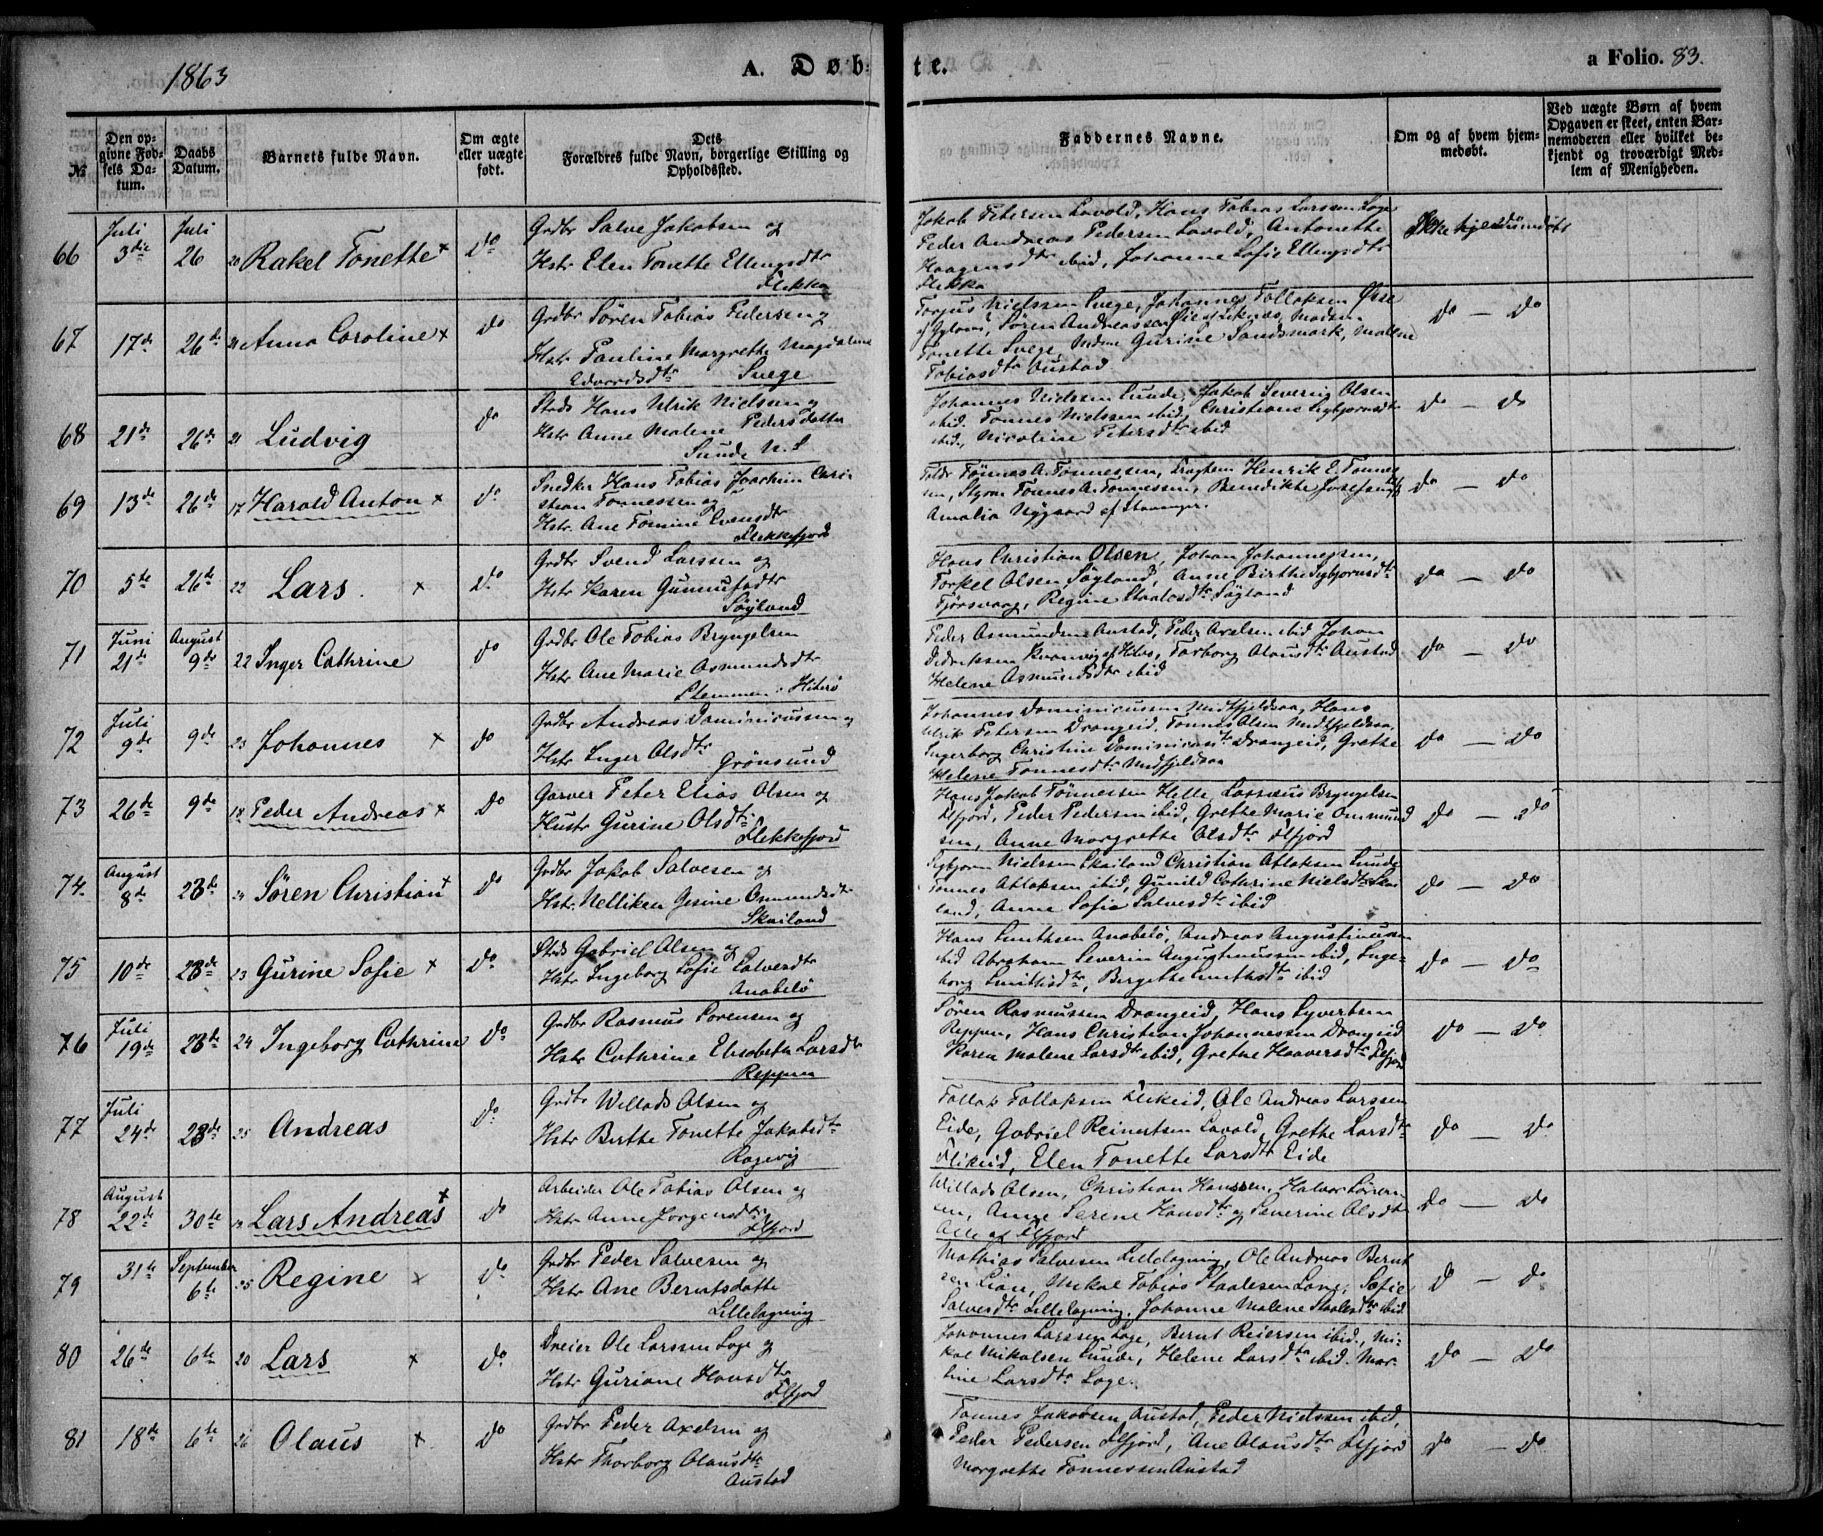 1863
A. Døbte.
a Folio. 83.
No
Den opgivne Fødsels Datum.
Daabs Datum.
Barnets fulde Navn.
Om ægte eller uægte født.
Dets Forældres fulde Navn, borgerlige Stilling og Opholdssted.
Faddernes Navne.
Om og af hvem hjemmedøbt.
Ved uægte Børn af hvem Opgaven er skeet, enten Barnemoderen eller hvilket bekjendt og troværdigt Medlem af Menigheden.
66 Juli 3die Juli 26 20 Rakel Tonette x Do
Grdbr Salve Jakobsen og
Hstr Elen Tonette Ellingsdtr
Flikka
Jakob Petersen Lavold, Hans Tobias Larssen Loge
Peder Andreas Pedersen Lavold, Antonette
Haagensdtr ibid, Johanne Sofie Ellingsdtr
Flikka
Ikke hjemmedøbt
67 17de 26de 21 Anna Caroline x do
Grdbr Sören Tobias Pedersen og
Hstr Pauline Margrethe Magdalene
Edvardsdtr Svege
Torjus Nielssen Svege, Johannes Tollaksen Öysæ
Sören Andreassen
Tonette Svege, Gurine Sandsmark, Malene
Tobiasdtr Austad
do — do
68 21de 26de 21 Ludvig do
Hans Ulrik Nielsen og
Hstr Anne Malene Pedersdatter
Sunde N. S
Johannes Nielssen Sunde, Jakob Severin Olsen
ibid. Tönnes Nielssen ibid, Christiane Sigbjørnsdtr
ibid, Nicoline Petersdtr ibid
do — do
69 13de 26de 17 Harald Anton x do
Snedker Hans Tobias Joachim Chri-
stian Tönnessen og
Hstr Ane Tomine Svensdtr
Flekkefjord
Tönnes A. Tönnessen, Henrik E. Tönnes-
sen, Styrm Tönnes A. Tönnessen, Benedikte Josefsen
Amalia Nygaard af Stavanger.
do — do
70 5te 26de 22 Lars x do
Grdbr Svend Larssen og
Hstr Karen Gunnufsdtr
Söyland
Hans Christian Olsen, Johan Johannessen,
Torkel Olsen Söyland, Anne Birthe Sigbjørnsdtr
Fjörsvaag, Regine Staalesdtr Söyland
do — do
71 Juni 21de August 9de 22 Inger Cathrine do
Grdbr Ole Tobias Bryngelsen
Hstr Ane Marie Asmundsdtr
Stemmen i Hiterö
Peder Asmundsen Austad, Peder Axelsen ibid Johan
Didriksen Kvanvig af Hitø, Torborg Olausdtr Austad
Helene Asmundsdtr ibid
do — do
72 Juli 9de 9de 23 Johannes x do
Grdbr Andreas Dominicussen og
Hstr Inger Olsdtr Grönsund
Johannes Dominicussen Midtfjeldsaa, Hans
Ulrik Petersen Drangeid, Tönnes Olsen Midtfjeldsaa
Ingerborg Christine Dominicusdtr Drangeid, Grethe
Helene Tönnesdtr Midtfjeldsaa
do — do
73 26de 9de 18 Peder Andreas x do
Garver Peter Elias Olsen og
Hustr Gurine Olsdtr
Flekkefjord
Hans Jakob Tönnessen Helle, Lassæus Bryngelsen
Flfjord, Peder Pedersen ibid, Grethe Marie Ommund
sen, Anne Margrethe Olsdtr Flfjord
do — do
74. August 8de 23de 24 Sören Christian x do
Grdbr Jakob Salvesen og
Hstr. Nelliken Gesine Ommundsdtr
Skailand
Sigbjørn Nielssen Skailand Christian Atlaksen Sunde
Tönnes Atlaksen ibid, Gunild Cathrine Nielsdtr Skai
land, Anne Sofie Salvesdtr ibid
do — do
75 10de 23de 23 Gurine Sofie x do
Gabriel Olsen og
Hstr Ingeborg Sofie Salvesdtr
Anabelö
Hans Smithsen Anabelö, Andreas Augustinussen
ibid Abraham Severin Augustinussen ibid, Inge-
borg Smithsdtr, Bergethe Smithsdtr ibid
do — do
76 Juli 19de 23de 24 Ingeborg Cathrine do
Grdbr Rasmus Sörensen og
Hstr Cathrine Elisabeth Larsdtr
Reppen
Sören Rasmussen Drangeid, Hans Syvertsen
Reppen, Hans Christian Johannessen Drangeid
Karen Malene Larsdtr ibid, Grethe Haaversdtr Flfjord
do — do
77 Juli 24de 23de 25 Andreas do
Grdbr Willads Olsen og
Hstr Birthe Tonette Jakobsdtr
Ragevig
Tollak Tollaksen Flikeid, Ole Andreas Larssen
Eide, Gabriel Reinertsen Lavold, Grethe Larsdtr
Flikeid, Elen Tonette Larsdtr Eide
do — do
78 August 22de 30te 19 Lars Andreas x do
Arbeider Ole Tobias Olsen og
Hstr Anne Jörgensdtr
Flfjord
Willads Olsen, Christian Hanssen, Halvor Sören-
sen, Serine Hansdtr og Severine Olsdtr
Alle af Flfjord
do — do
79 31te September 6te 25 Regine x do
Grdbr Peder Salvesen og
Hstr Ane Berntsdatter
Lillelagning
Mathias Salvesen Lillelagning, Ole Andreas Bernt
sen Lian, Mikal Tobias Staalesen Long, Sofie
Salvesdtr Lillelagning, Johanne Malene Staalesdtr ibid
do — do
80 26de 6te 20 Lars x do
Dreier Ole Larssen Loge og
Hstr Guriane Hansdtr
Flfjord
Johannes Larssen Loge, Bernt Reiersen ibid., Mi-
kal Mikalsen Sunde, Helene Larsdtr ibid. Mar-
tine Larsdtr Loge.
do — do
81 18de 6te 26 Olaus x do
Grdbr Peder Axelsen og
Hstr Thorborg Olausdtr
Austad
Tönnes Jakobsen Austad, Peder Nielssen ibid,
Peder Pedersen Flfjord, Ane Olausdtr Flfjord
Margrethe Tönnessen Austad
do — do